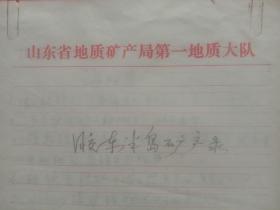 山东省地质矿产局第一地质大队
胶东半岛矿产录